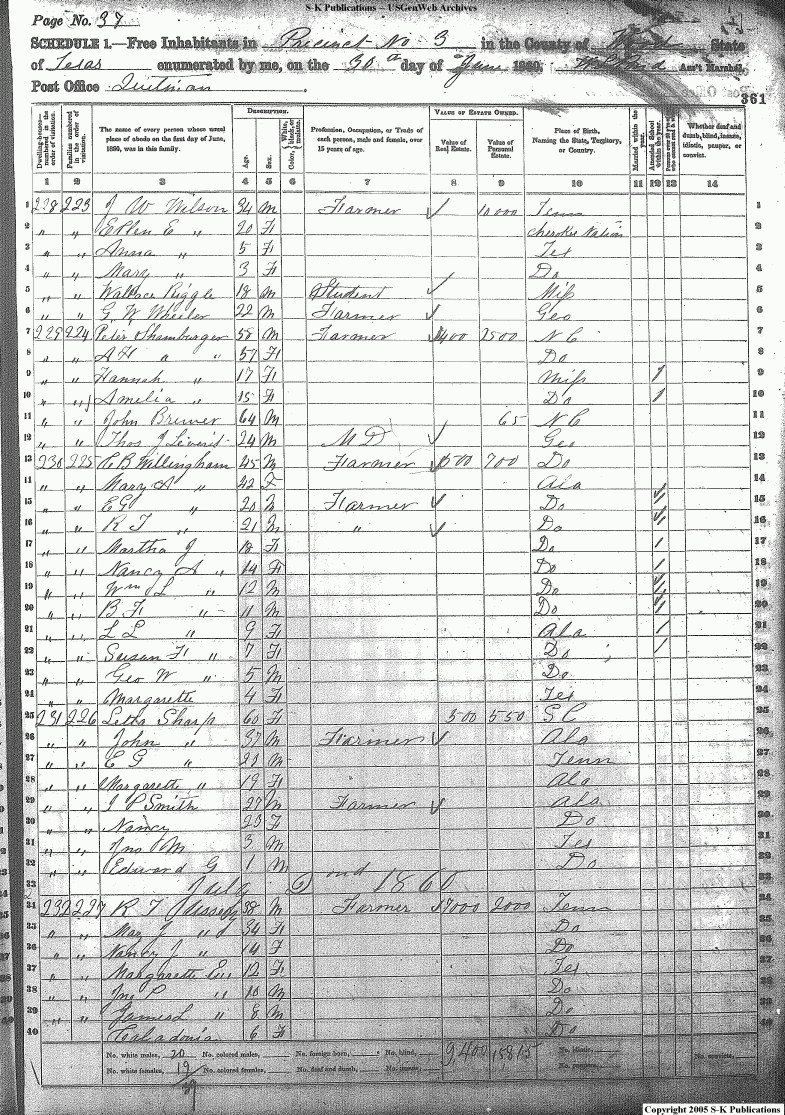 S-K Publications – USGenWeb Archives
Page No. 37
SCHEDULE 1.—Free Inhabitants in Precinct No 3 in the County of Wood State
of Texas enumerated by me, on the 30th day of June 1860. Ass't Marshal.
Post Office Quitman
361
Dwelling-houses—numbered in the order of visitation. Families numbered in the order of visitation. The name of every person whose usual place of abode on the first day of June, 1860, was in this family. DESCRIPTION. Age. Sex. Color, White, black, or mulatto. Profession, Occupation, or Trade of each person, male and female, over 15 years of age. VALUE OF ESTATE OWNED. Value of Real Estate. Value of Personal Estate. Place of Birth, Naming the State, Territory, or Country. Married within the year. Attended School within the year. Whether deaf and dumb, blind, insane, idiotic, pauper, or convict.
1 2 3 4 5 6 7 8 9 10 11 12 13 14
1 228 223 J W Wilson 34 M Farmer ✓ 10000 Tenn 1
2 " " Ellen E " 20 F Cherokee Nation 2
3 " " Anna " 5 F Tex 3
4 " " Mary " 3 F Do 4
5 " " Wallace Riggle 18 M Student ✓ Miss 5
6 " " G. W. Wheeler 22 M Farmer ✓ Geo 6
7 229 224 Peter Shamburger 58 M Farmer ✓ 2500 N C 7
8 " " " " 57 F Do 8
9 " " Hannah " 17 F Miss / 9
10 " " Amelia " 15 F Do / 10
11 " " John Brewer 64 M 65 N C 11
12 " " Thos J 24 M M D ✓ Geo 12
13 230 225 Willingham 45 M Farmer ✓ 700 Do 13
14 " " Mary A " 42 F Ala 14
15 " " E G " 20 M Farmer ✓ Do 15
16 " " R T " 21 M " ✓ Do 16
17 " " Martha J 18 F Do / 17
18 " " Nancy A " 14 F Do / 18
19 " " Wm L " 12 M Do 19
20 " " B F " 11 M Do 20
21 " " L L " 9 F Ala / 21
22 " " Susan F " 7 F Do / 22
23 " " Geo W " 5 M Do 23
24 " " Margarette 4 F Tex 24
25 231 226 Letha Sharp 60 F 500 550 S C 25
26 " " John " 37 M Farmer ✓ Ala 26
27 " " E G " M Tenn 27
28 " " Margarette " 19 F Ala 28
29 " " J P Smith 27 M Farmer ✓ Ala 29
30 " " Nancy 23 F Do 30
31 " " Jno M 3 M Tex 31
32 " " Edward G 1 M Do 32
33 July 2nd 1860 33
34 232 227 R T 38 M Farmer 2000 Tenn 34
35 " " May J " 34 F Do 35
36 " " Nancy J " 14 F Do 36
37 " " Margarette " 12 F Tex 37
38 " " Jno P " 10 M Do 38
39 " " James L " 8 M Do 39
40 Caladonia 6 F Do 40
No. white males, 20 No. colored males, No. foreign born, No. blind, 9,400 15815 No. idiotic, No. convicts,
No. white females, 19 No. colored females, No. deaf and dumb, No. insane, No. paupers,
39
Copyright 2005 S-K Publications